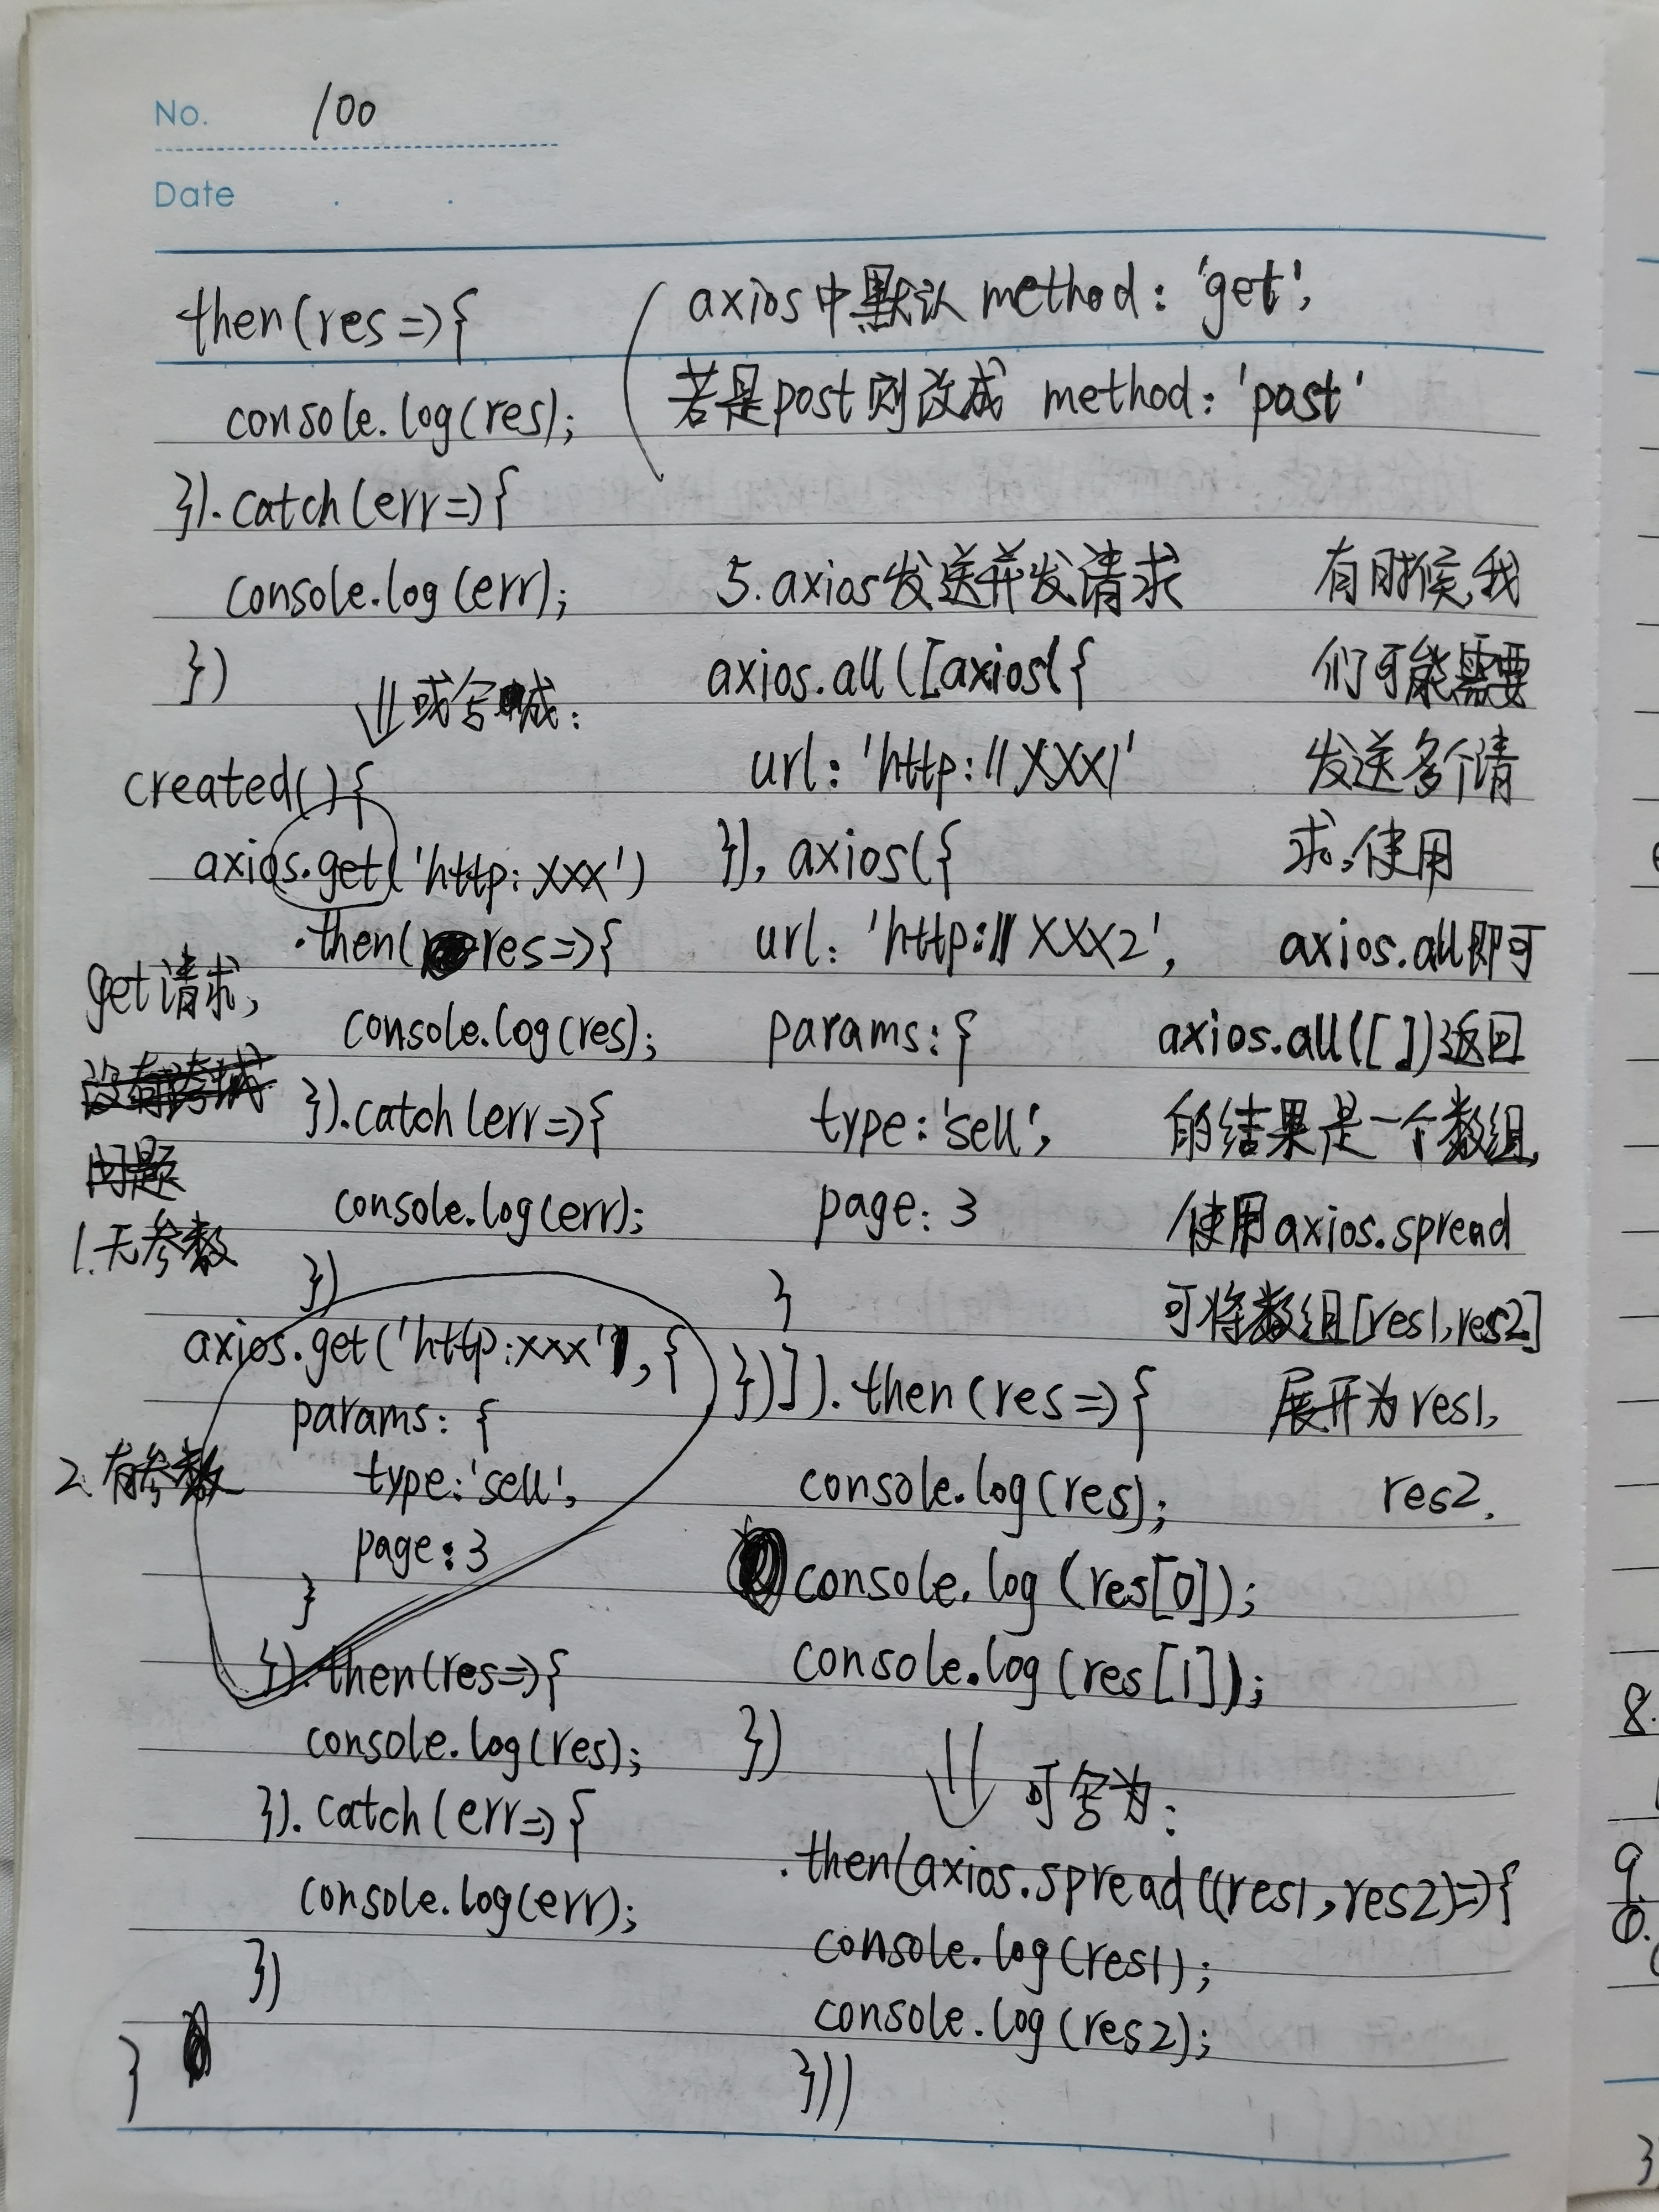 No. 100
Date
then(res=>{
console.log(res);
}).catch(err=>{
console.log(err);
})
或写成:
created(){
axios.get('http:xxx')
.then(res=>{
console.log(res);
}).catch(err=>{
console.log(err);
})
get请求,
没有跨域
问题
1.无参数
axios.get('http:xxx',{
params:{
type:'sell',
page:3
}
}).then(res=>{
console.log(res);
}).catch(err=>{
console.log(err);
})
}
2.有参数
axios中默认method:'get',
若是post则改成 method:'post'
5.axios发送并发请求
axios.all([axios({
url:'http://XXX1'
}),axios({
url:'http://XXX2',
params:{
type:'sell',
page:3
}
})]).then(res=>{
console.log(res);
console.log(res[0]);
console.log(res[1]);
})
可写为:
.then(axios.spread((res1,res2)=>{
console.log(res1);
console.log(res2);
}))
有时候,我
们可能需要
发送多个请
求,使用
axios.all即可
axios.all([])返回
的结果是一个数组,
使用axios.spread
可将数组[res1,res2]
展开为res1,
res2.
8.
9.